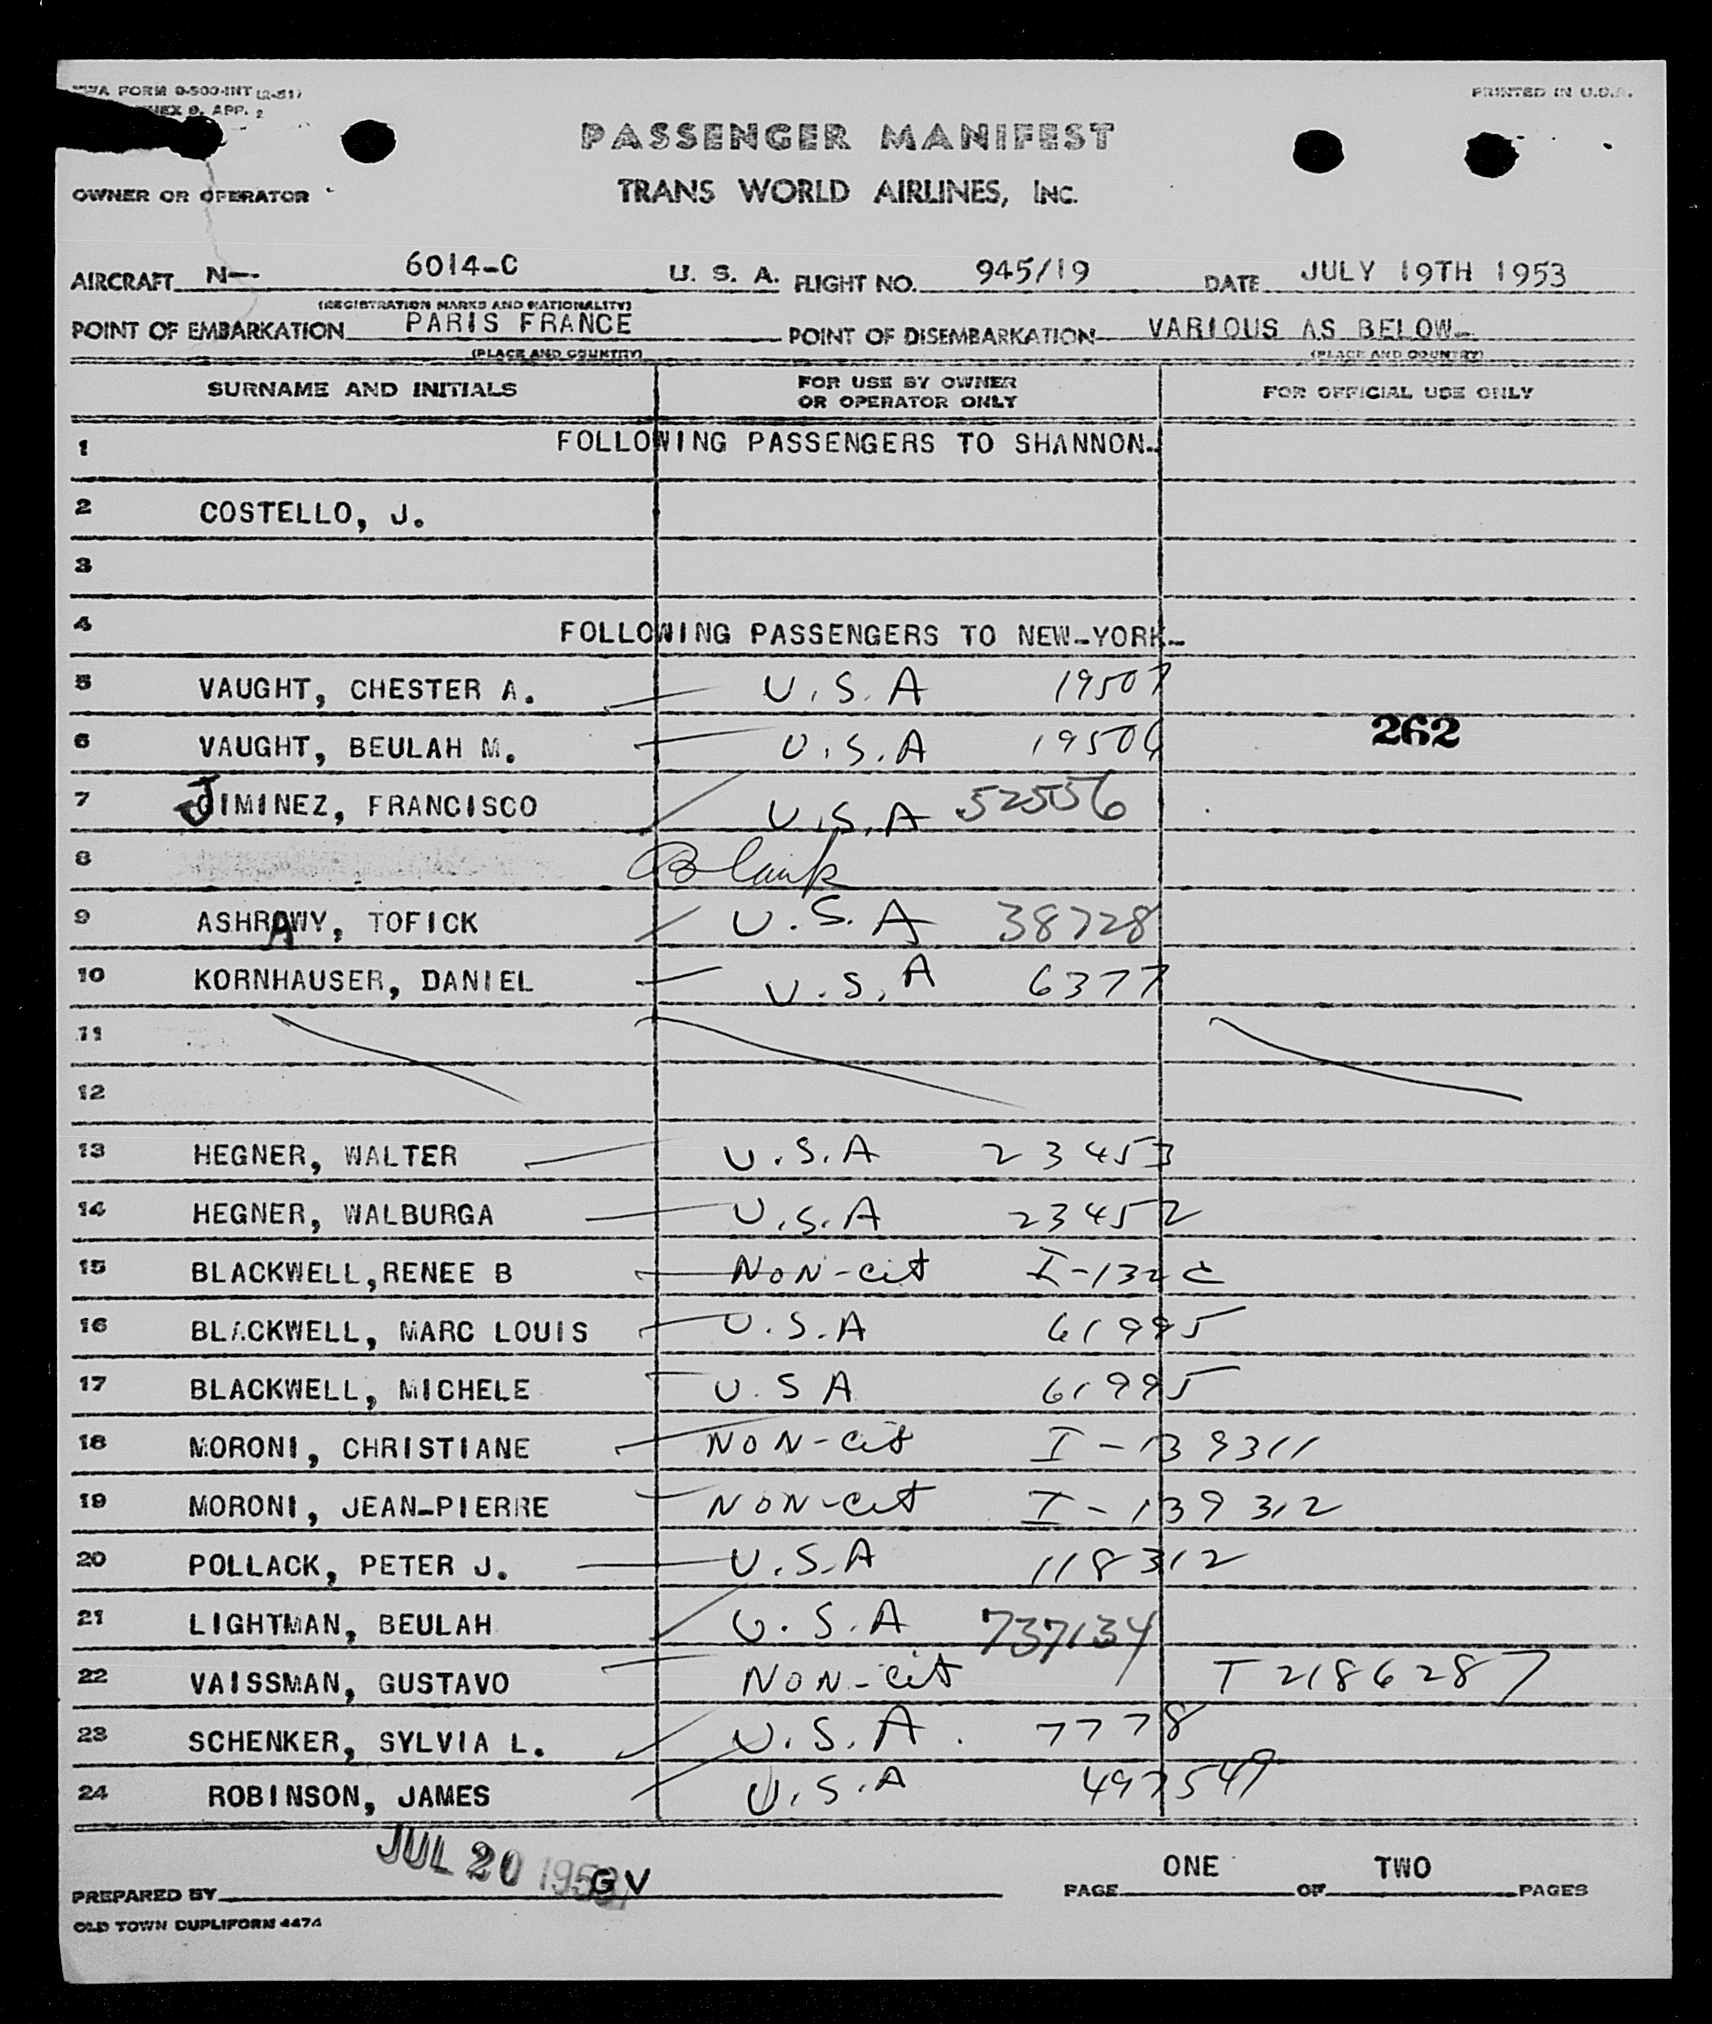 TWA FORM 0-500-INT (2-51)
ANNEX 9, APP. 2
PRINTED IN U.S.A.
PASSENGER MANIFEST
OWNER OR OPERATOR
TRANS WORLD AIRLINES, INC.
AIRCRAFT N-- 6014-C U. S. A. FLIGHT NO. 945/19 DATE JULY 19TH 1953
(REGISTRATION MARKS AND NATIONALITY)
POINT OF EMBARKATION PARIS FRANCE POINT OF DISEMBARKATION VARIOUS AS BELOW-
(PLACE AND COUNTRY) (PLACE AND COUNTRY)
SURNAME AND INITIALS FOR USE BY OWNER OR OPERATOR ONLY FOR OFFICIAL USE ONLY
1 FOLLOWING PASSENGERS TO SHANNON-
2 COSTELLO, J.
3
4 FOLLOWING PASSENGERS TO NEW-YORK-
5 VAUGHT, CHESTER A. U.S.A 19507
6 VAUGHT, BEULAH M. U.S.A 19506 262
7 JIMINEZ, FRANCISCO U.S.A 52556
8 Blank
9 ASHRAWY, TOFICK U.S.A 38728
10 KORNHAUSER, DANIEL U.S.A 6377
11
12
13 HEGNER, WALTER U.S.A 23453
14 HEGNER, WALBURGA U.S.A 23452
15 BLACKWELL,RENEE B NON-cit
16 BLACKWELL, MARC LOUIS U.S.A 61995
17 BLACKWELL, MICHELE U.S A 61995
18 MORONI, CHRISTIANE NON-cit I-139311
19 MORONI, JEAN-PIERRE NON-cit I-139312
20 POLLACK, PETER J. U.S.A 118312
21 LIGHTMAN, BEULAH U.S.A 737134
22 VAISSMAN, GUSTAVO NON-cit T2186287
23 SCHENKER, SYLVIA L. U.S.A. 7778
24 ROBINSON, JAMES U.S.A 497549
JUL 20 1953
PREPARED BY GV PAGE ONE OF TWO PAGES
OLD TOWN DUPLIFORM 4474